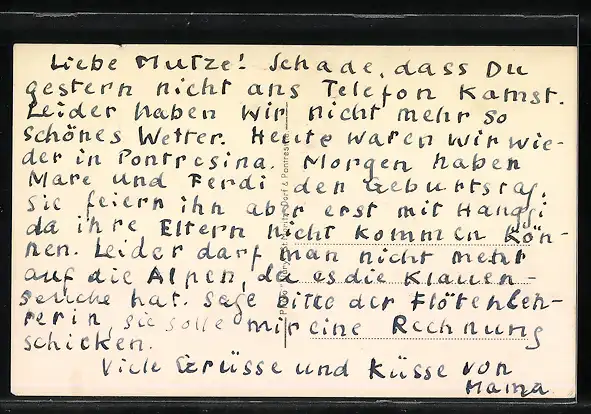 Liebe Mutze! Schade, dass Du
gestern nicht ans Telefon kamst.
Leider haben wir nicht mehr so
schönes Wetter. Heute waren wir wie-
der in Pontresina. Morgen haben
Mare und Ferdi den Geburtstag.
Sie feiern ihn aber erst mit Hansji
da ihre Eltern nicht kommen kön-
nen. Leider darf man nicht mehr
auf die Alpen, da es die Klauen-
seuche hat. Sage bitte der Flötenleh-
rerin, sie solle mir eine Rechnung
schicken.
Viele Grüsse und Küsse von
Mama